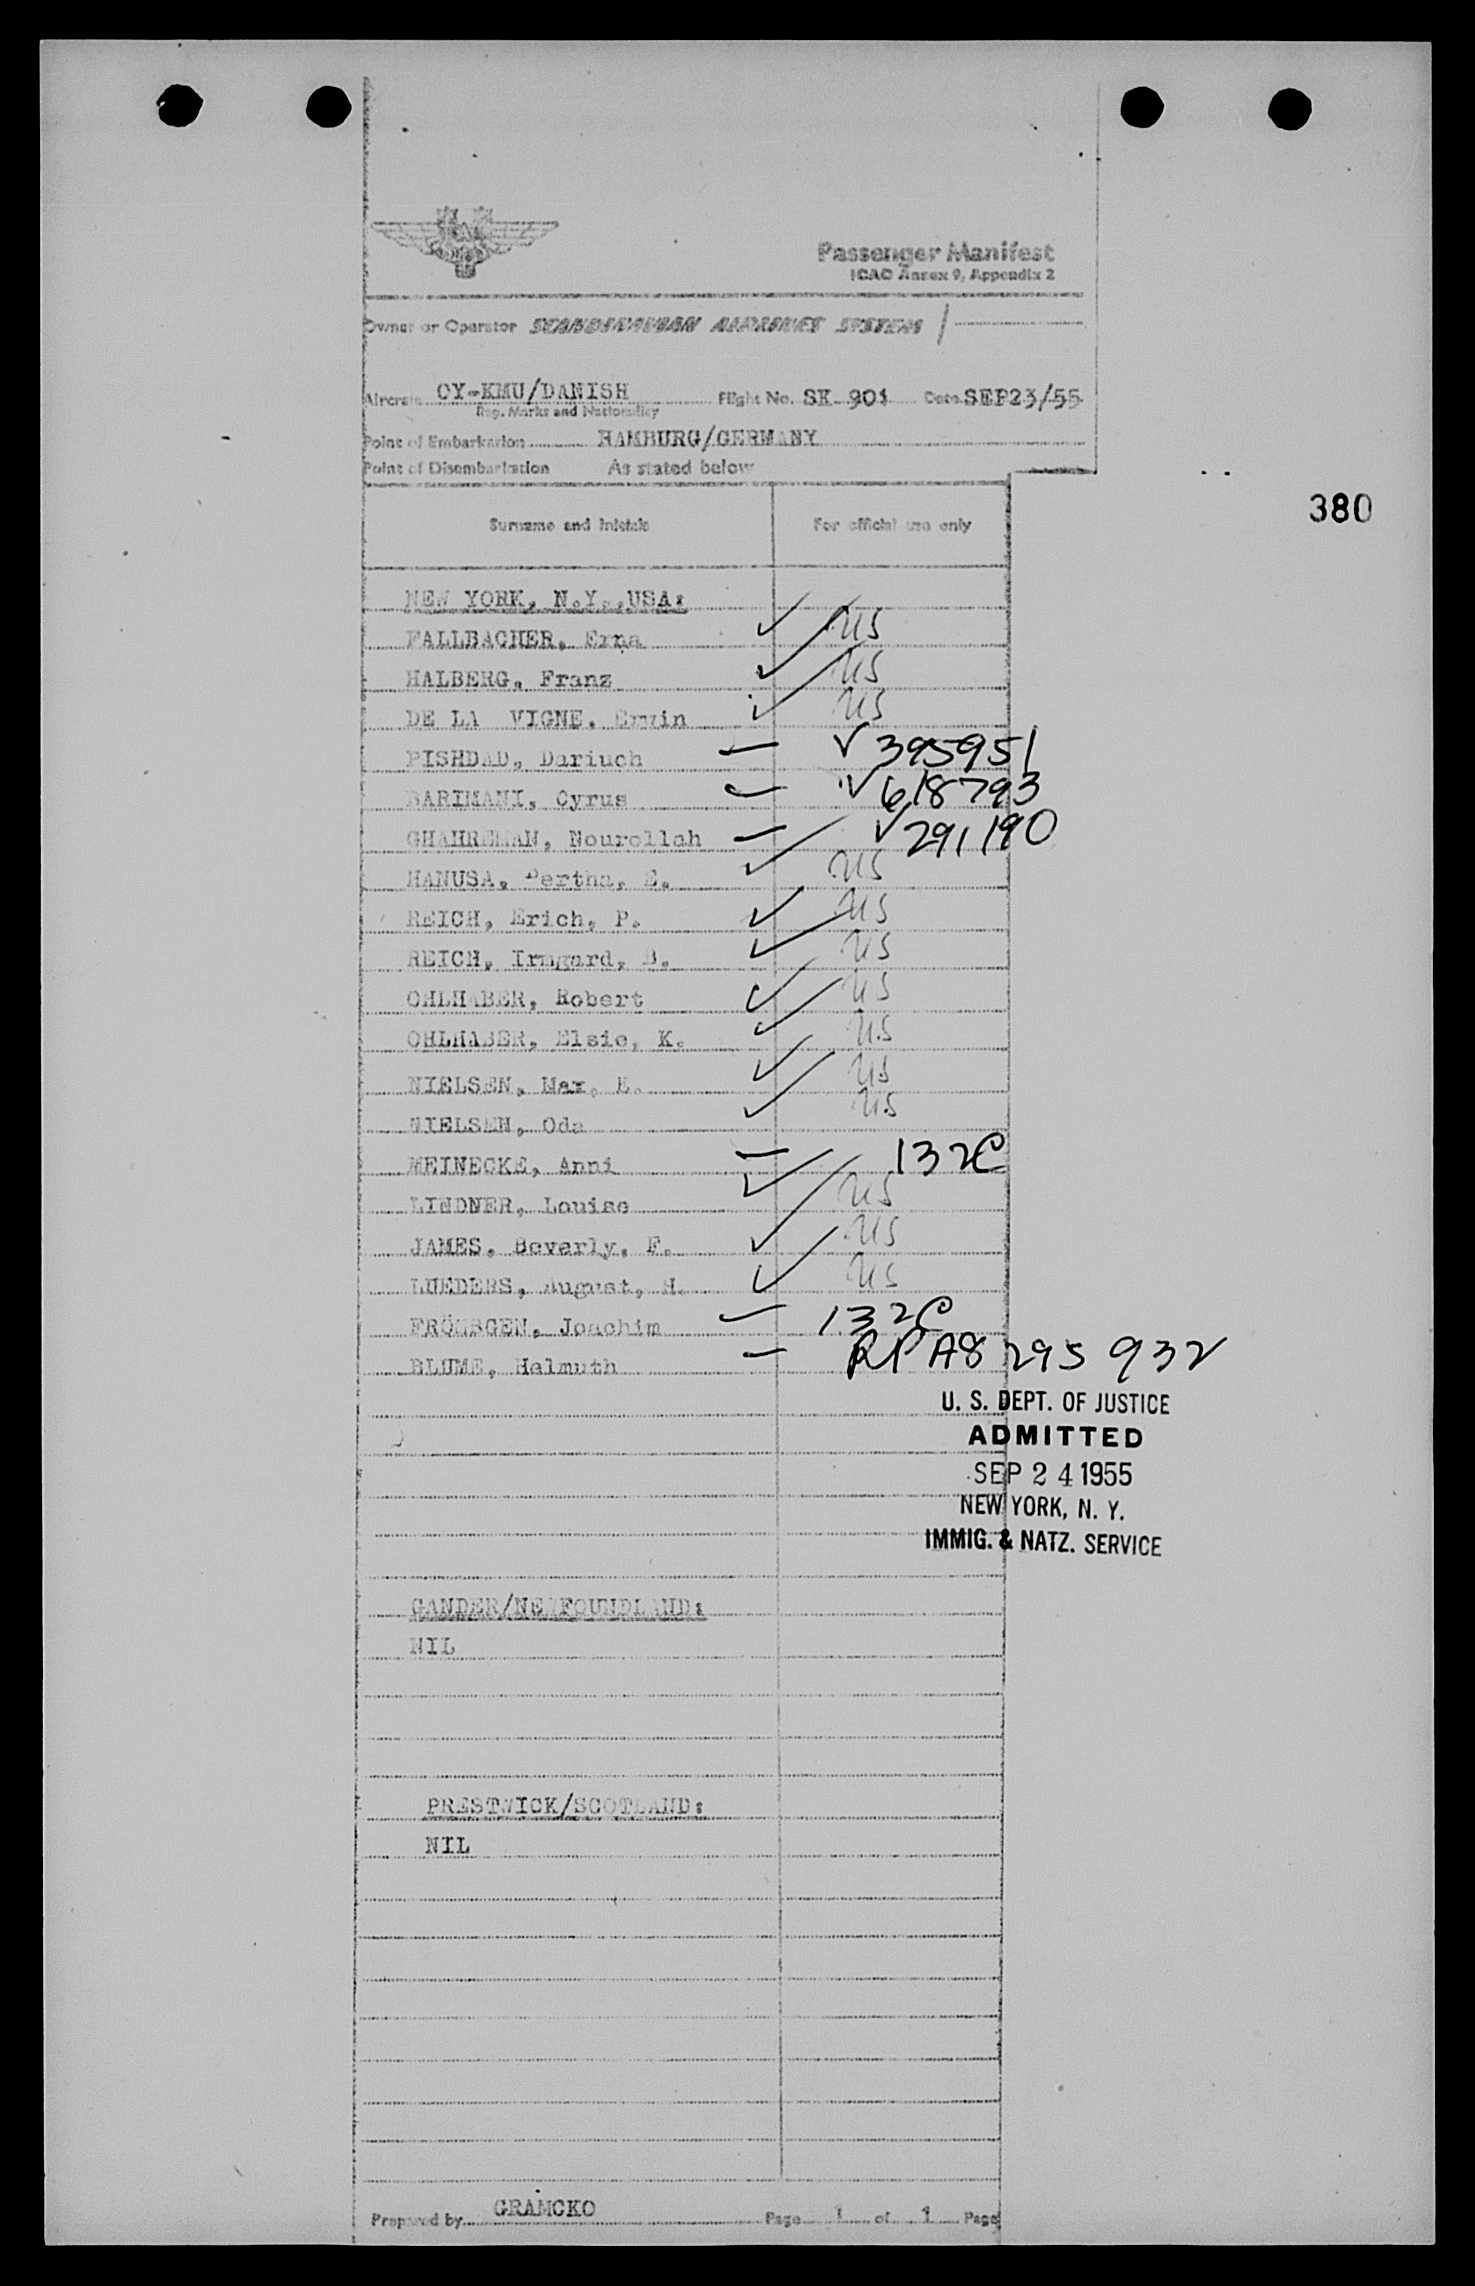 Passenger Manifest
ICAO Annex 9, Appendix 2
Owner or Operator SCANDINAVIAN AIRLINES SYSTEM
Aircraft OY-KMU/DANISH Flight No. SK 901 Date SEP23/55
Reg. Marks and Nationality
Point of Embarkation HAMBURG/GERMANY
Point of Disembarkation As stated below
380
Surname and Initials For official use only
NEW YORK, N.Y.,USA:
FALLBACHER, Erna ✓ US
HALBERG, Franz ✓ US
DE LA VIGNE, Erwin ✓ US
PISHDAD, Dariuch — ✓ 395951
BARIMANI, Cyrus — ✓ 618793
GHAHREMAN, Nourollah — ✓ 291190
HANUSA, Bertha, E. ✓ US
REICH, Erich, P. ✓ US
REICH, Irmgard, B. ✓ US
OHLHABER, Robert ✓ US
OHLHABER, Elsie, K. ✓ US
NIELSEN, Max, E. ✓ US
NIELSEN, Oda ✓ US
MEINECKE, Anni — 132C
LINDNER, Louise ✓ US
JAMES, Beverly, F. ✓ US
LUEDERS, August, H. ✓ US
FRÖMSGEN, Joachim — 132C
BLUME, Helmuth — RP A8 295 932
U. S. DEPT. OF JUSTICE
ADMITTED
SEP 24 1955
NEW YORK, N. Y.
IMMIG. & NATZ. SERVICE
GANDER/NEWFOUNDLAND:
NIL
PRESTWICK/SCOTLAND:
NIL
Prepared by GRAMCKO Page 1 of 1 Page